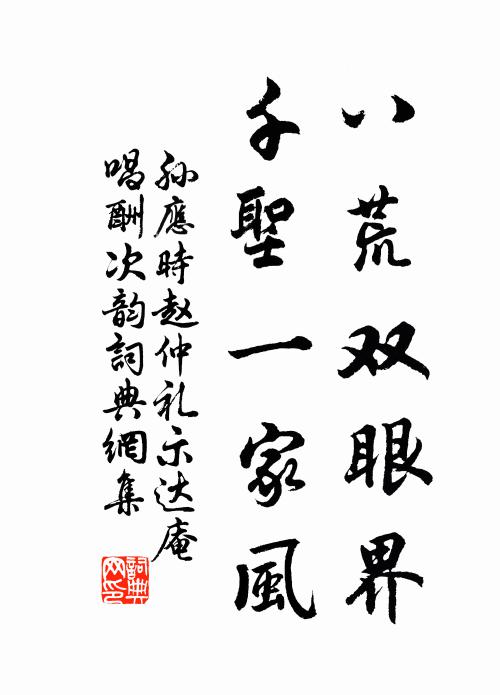 八荒双眼界
千聖一家風
孙應時赵仲礼示达庵
唱酬次韵詞典網集
詞典
网印